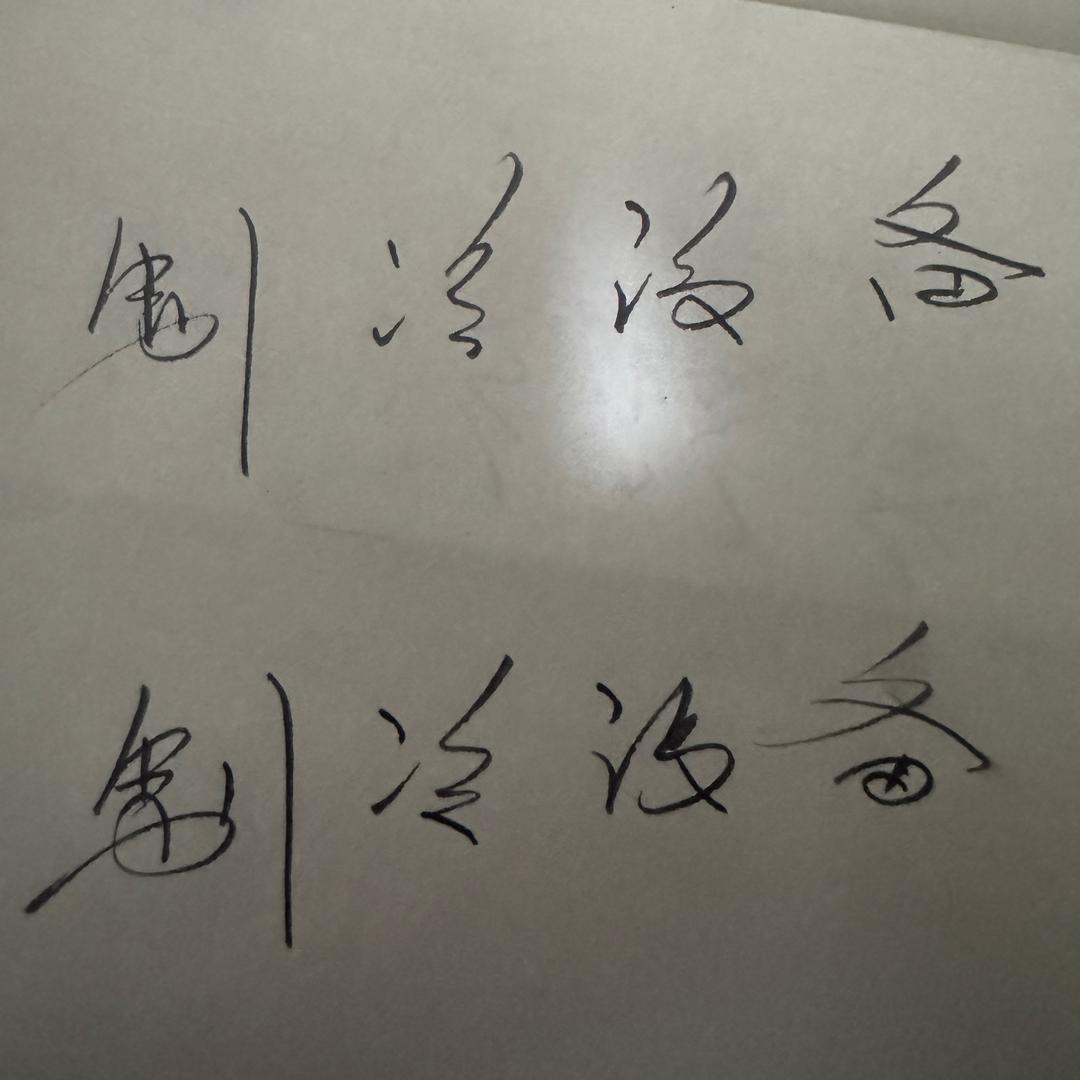 制冷设备
制冷设备